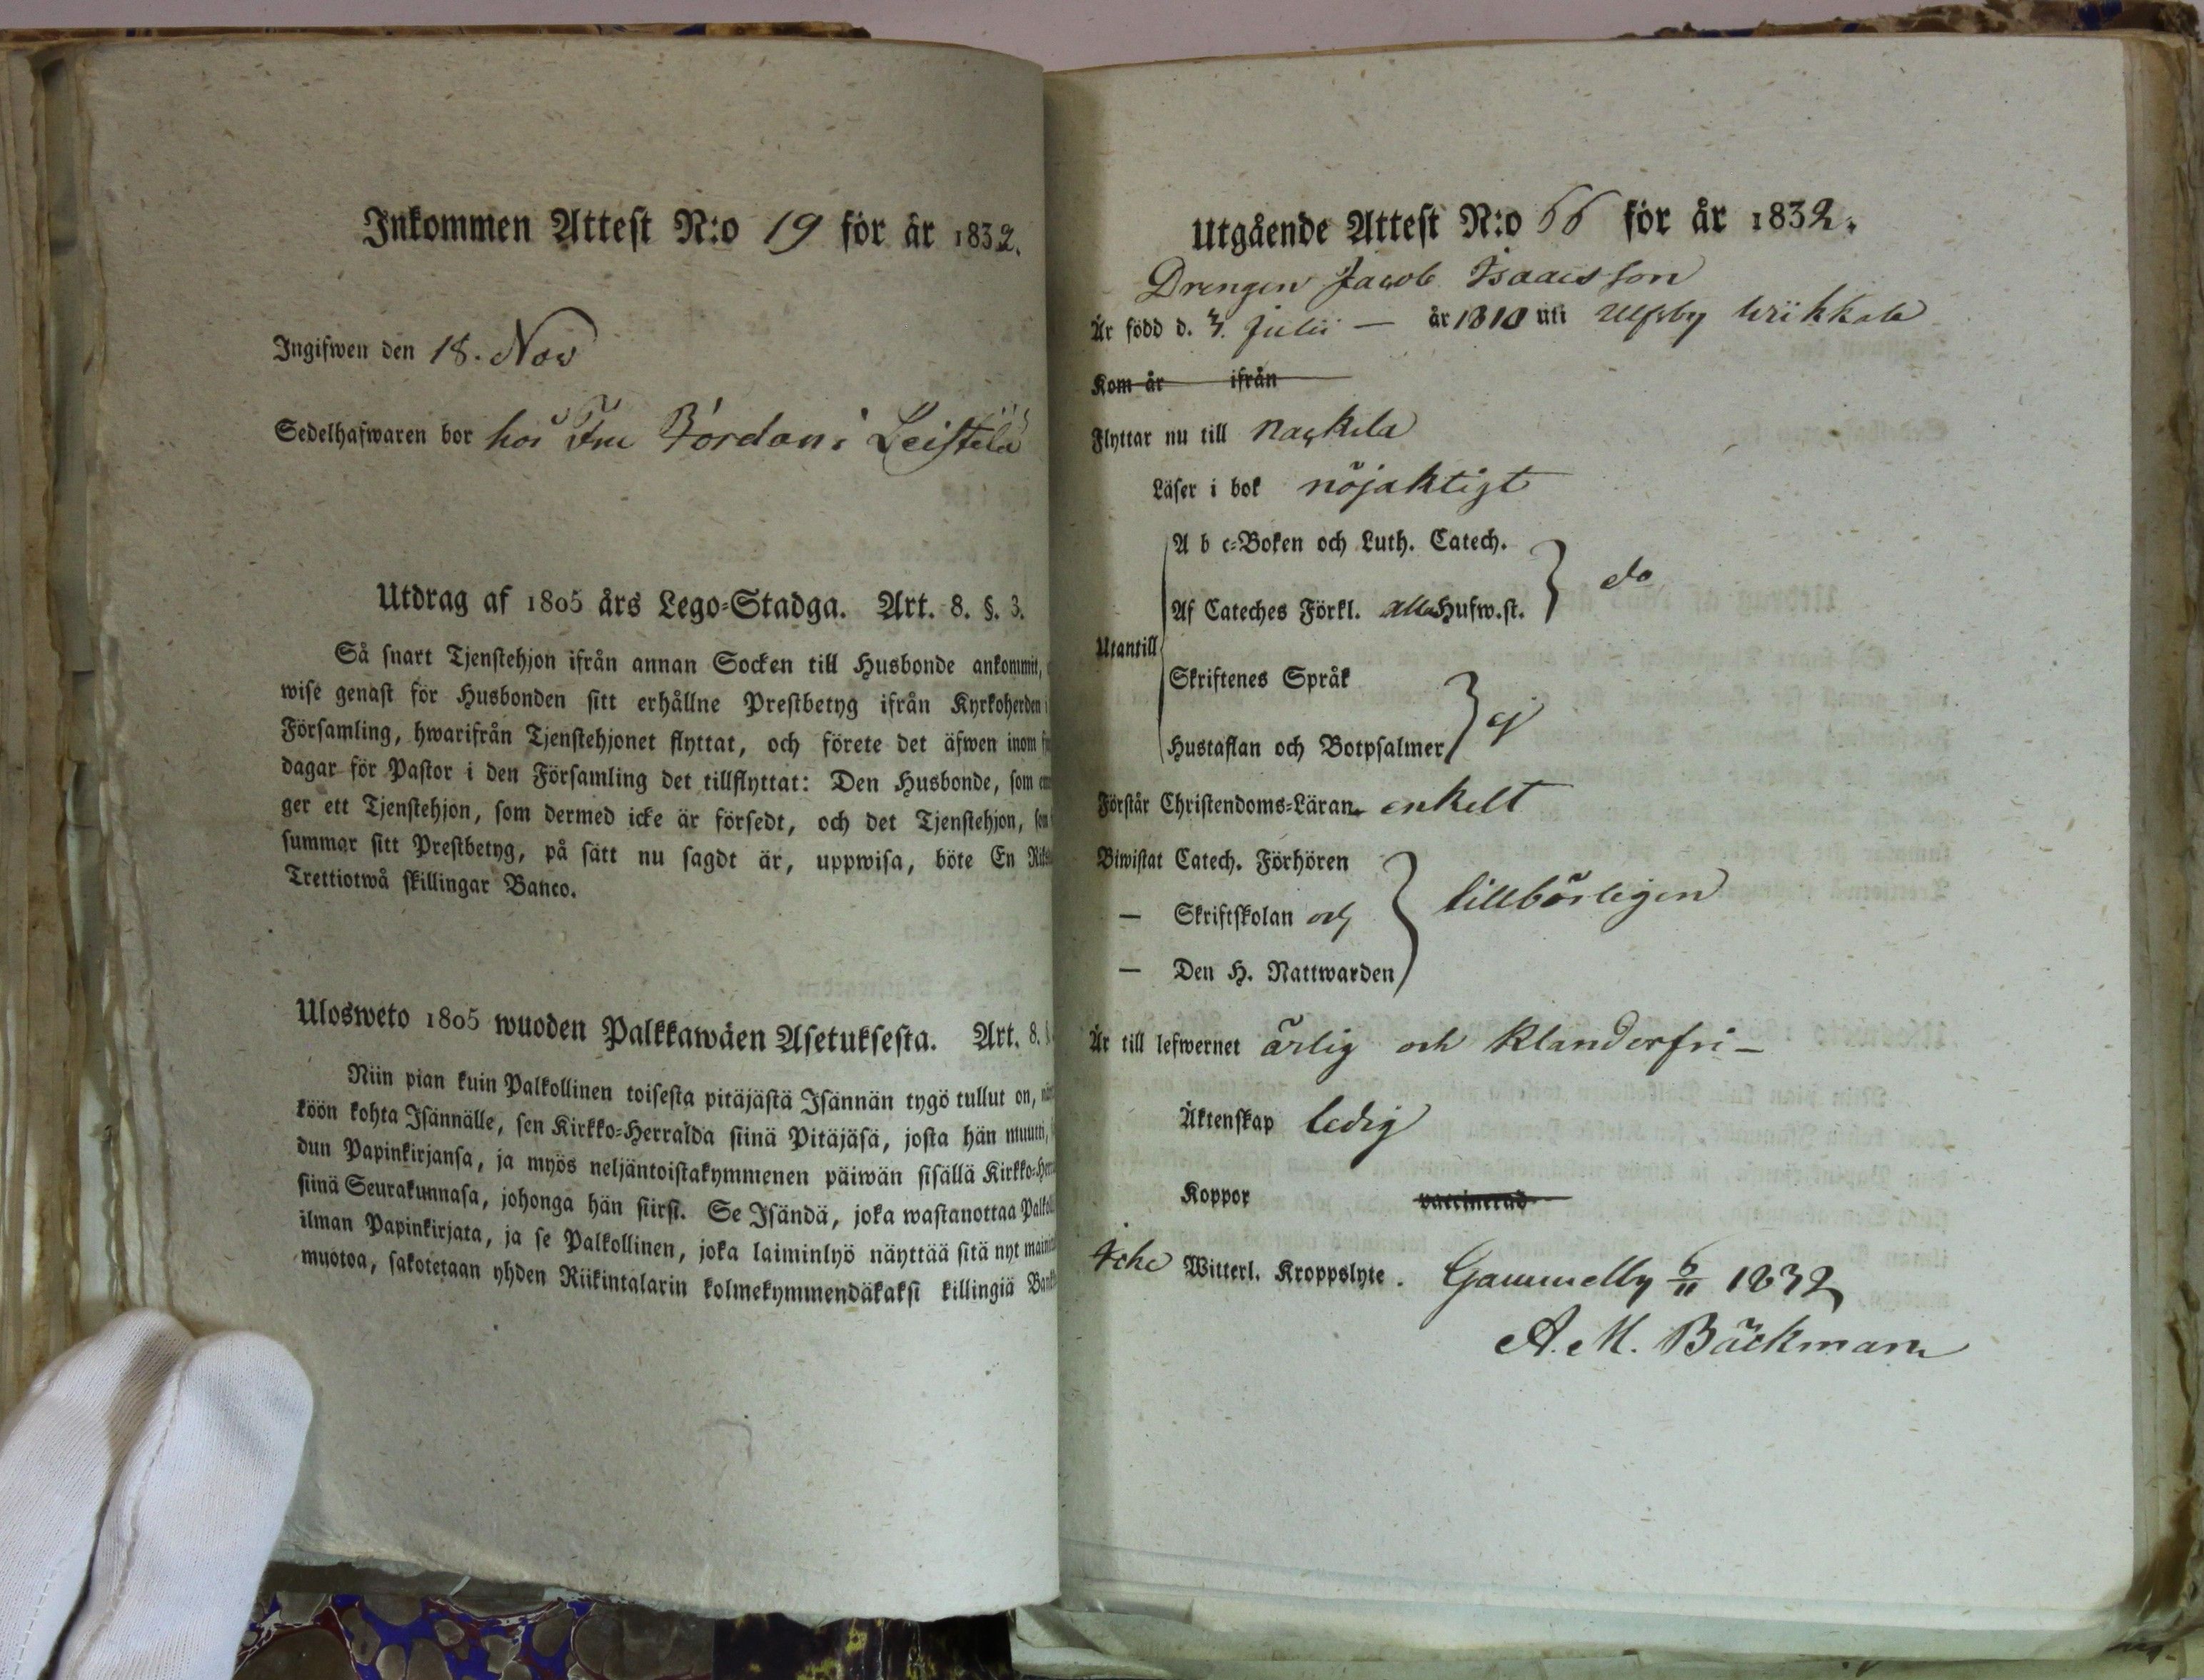 Inkommen Attest N:o 19 för år 1832.
Ingifwen den 18. Nov
Sedelhafwaren bor hos Fru Bördon i Leistelä
Utdrag af 1805 års Lego-Stadga. Art. 8. §. 3.
Så snart Tjenstehjon ifrån annan Socken till Husbonde ankommit,
wise genast för Husbonden sitt erhållne Prestbetyg ifrån Kyrkoherden i
Församling, hwarifrån Tjenstehjonet flyttat, och förete det äfwen inom
dagar för Pastor i den Församling det tillflyttat: Den Husbonde, som
ger ett Tjenstehjon, som dermed icke är försedt, och det Tjenstehjon,
summar sitt Prestbetyg, på sätt nu sagdt är, uppwisa, böte En
Trettiotwå skillingar Banco.
Ulosweto 1805 wuoden Palkkawäen Asetuksesta. Art. 8.
Niin pian kuin Palkollinen toisesta pitäjästä Isännän tygö tullut on,
köön kohta Isännälle, sen Kirkko-Herralda siinä Pitäjäsä, josta hän muutti,
dun Papinkirjansa, ja myös neljäntoistakymmenen päiwän sisällä Kirkko-
siinä Seurakunnasa, johonga hän siirsi. Se Isändä, joka wastanottaa
ilman Papinkirjata, ja se Palkollinen, joka laiminlyö näyttää sitä nyt
muotoa, sakotetaan yhden Riikintalarin kolmekymmendäkaksi killingiä
Utgående Attest N:o 66 för år 1832.
Drengen Jacob Isaacsson
Är född d. 3. Julii — år 1810 uti Ulfsby Wrikkala
Kom år ifrån
Flyttar nu till Nackila
Läser i bok nöjaktigt
A b c-Boken och Luth. Catech.
do
Af Cateches Förkl. alla Hufw.st.
Utantill
Skriftenes Språk
ej
Hustaflan och Botpsalmer
Förstår Christendoms-Läran enkelt
Biwistat Catech. Förhören
— Skriftskolan och
tillbörligen
— Den H. Nattwarden
Är till lefwernet ärlig och klanderfri —
Äktenskap ledig
Koppor vaccinerad
Icke Witterl. Kroppslyte. Gammelby 6/11 1832
A. M. Bäckman